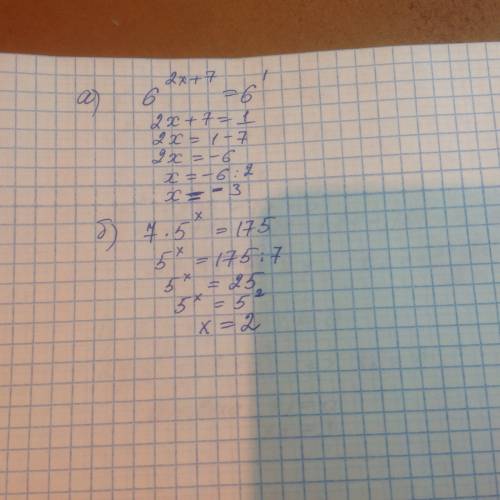 а) 6^{2x+7} = 6^1
2x+7 = 1
2x = 1-7
2x = -6
x = -6:2
x = -3
б) 7·5^x = 175
5^x = 175:7
5^x = 25
5^x = 5^2
x = 2